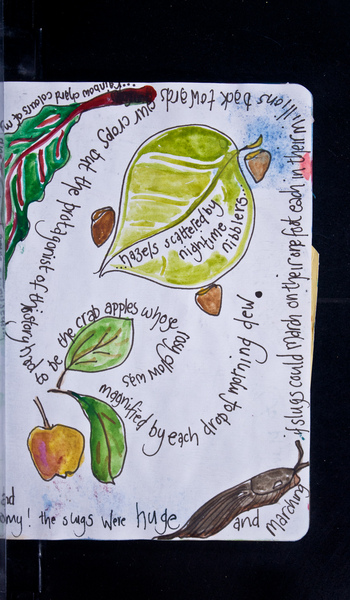 nd
omy! the slugs were huge and marching
if slugs could march on their one foot each in their millions back towards
our crops but the protagonist of this history has to be the crab apples whose
rosy glow was
magnified by each drop of morning dew.
...hazels scattered by
nightime
nibblers...
...rainbow chard colours of m